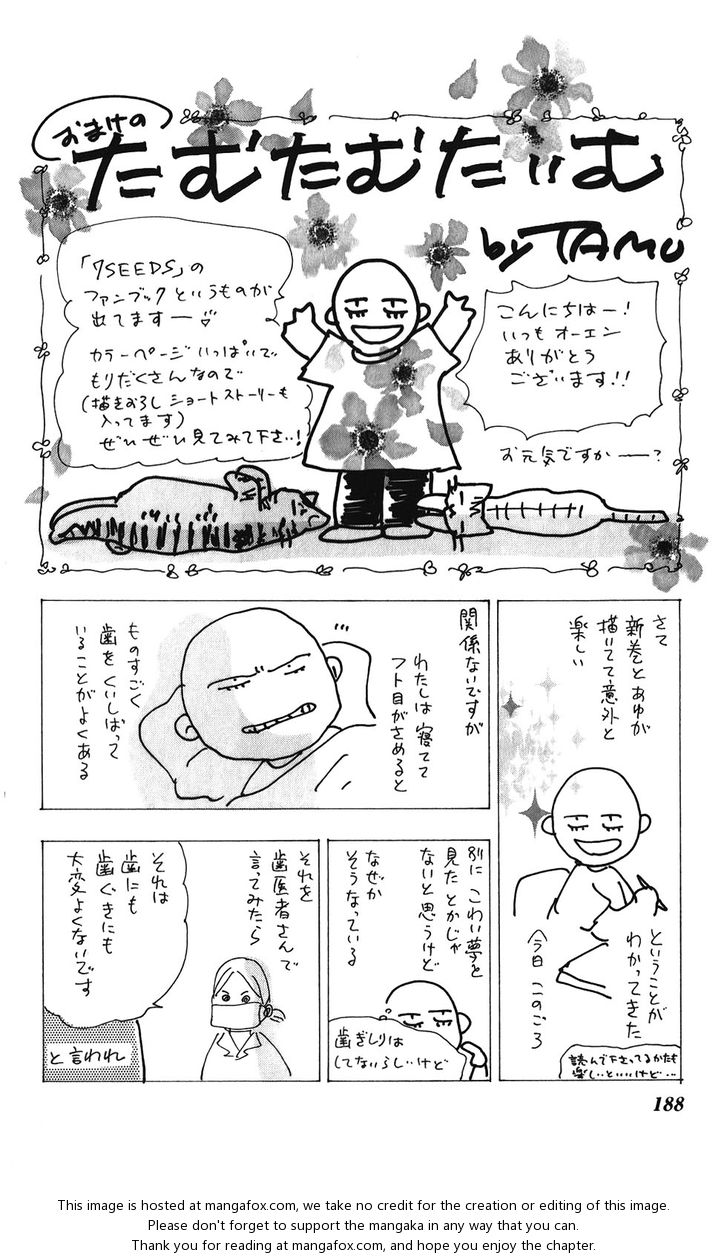 おまけの
たむたむたいむ
by TAMU
こんにちはー!
いつも オーエン
ありがとう
ございます!!
お元気ですか ー?
「7SEEDS」の
ファンブックというものが
出てますー
カラーページいっぱいで
もりだくさんなので
(描きおろし ショートストーリーも
入ってます)
ぜひぜひ見てみて下さい!
さて
新巻とあゆが
描いてて意外と
楽しい
ということが
わかってきた
今日このごろ
読んで下さってるかたも
楽しいといいけど…
関係ないですが
わたしは 寝てて
フト目がさめると
ものすごく
歯をくいしばって
いることがよくある
別に こわい夢を
見た とかじゃ
ないと思うけど
なぜか
そうなっている
歯ぎしりは
してないらしいけど
それを
歯医者さんで
言ってみたら
それは
歯にも
歯ぐきにも
大変よくないです
と言われ
188
This image is hosted at mangafox.com, we take no credit for the creation or editing of this image.
Please don't forget to support the mangaka in any way that you can.
Thank you for reading at mangafox.com, and hope you enjoy the chapter.